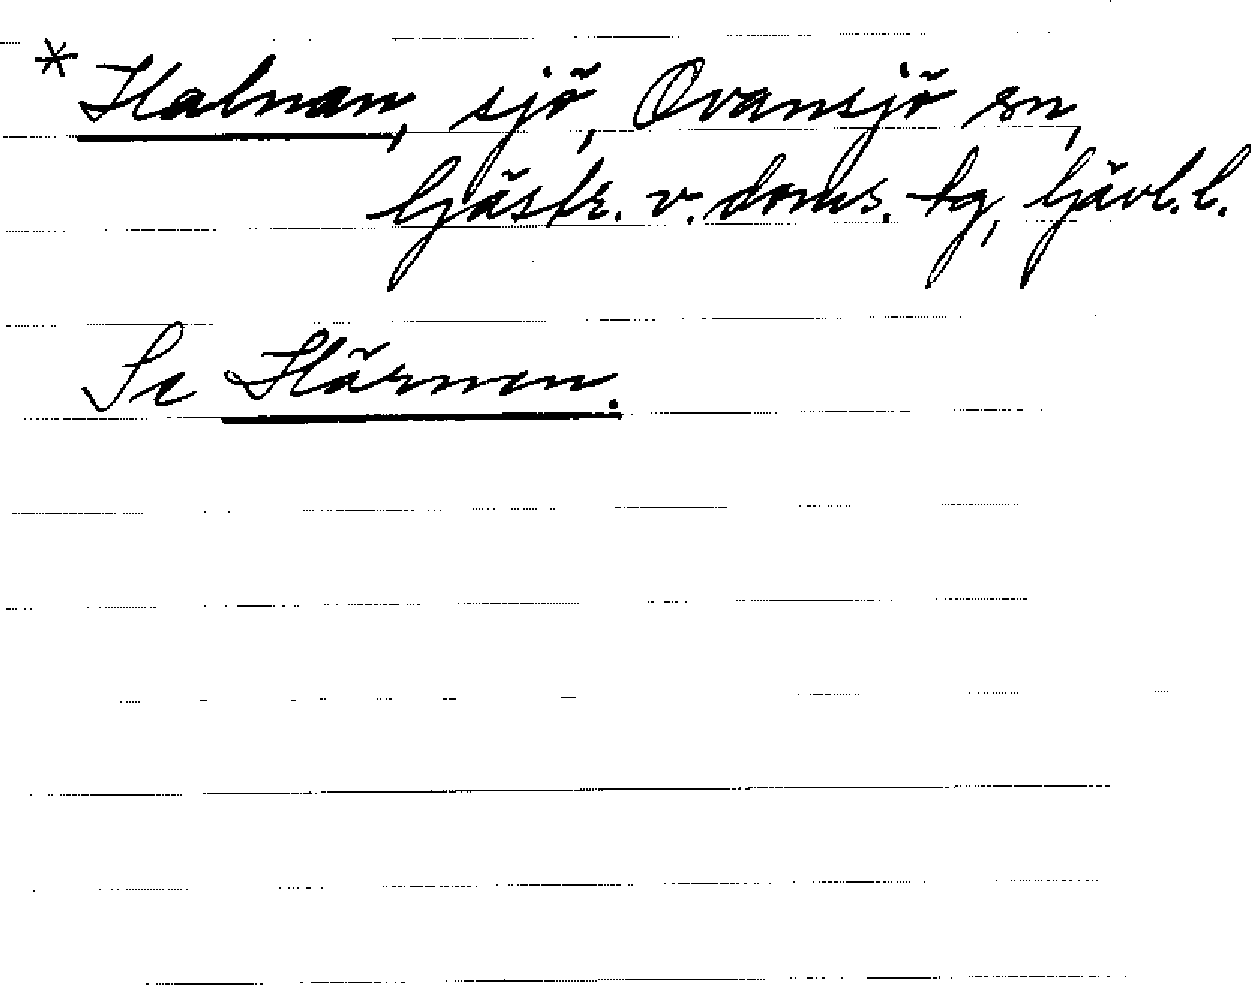 * Halnan, sjö, Ovansjö sn,
Gästr. v. doms. tg, Gävl. l.
Se Härnen.